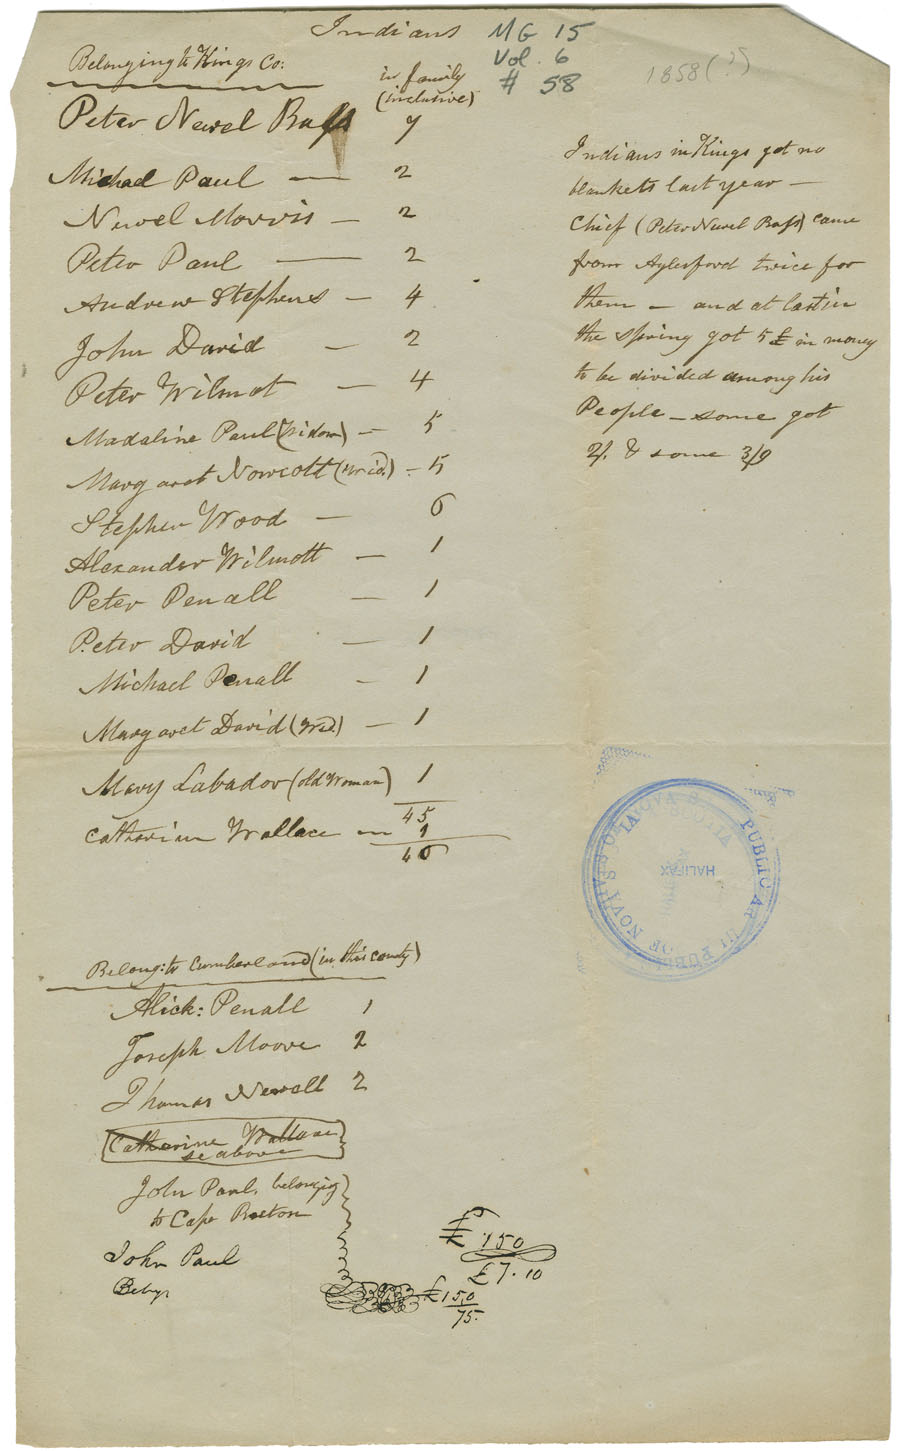 Indians
MG 15
Vol. 6
# 58
1858(?)
Belonging to Kings Co:
in family
(inclusive)
Peter Newel Bass 7
Michael Paul — 2
Newel Morris — 2
Peter Paul — 2
Andrew Stephens — 4
John David — 2
Peter Wilmot — 4
Madaline Paul (Widow) — 5
Margaret Nowcott (Wid.) - 5
Stephen Wood — 6
Alexander Wilmott — 1
Peter Penall — 1
Peter David — 1
Michael Penall - 1
Margaret David (Wid.) — 1
Mary Labador (old Woman) 1
45
Catharine Wallace — 1
46
Indians in Kings got no
blankets last year —
Chief (Peter Newel Bass) came
from Aylesford twice for
them — and at last in
the spring got 5 £ in money
to be divided among his
People — some got
2/. & some 3/9
PUBLIC
NOVA SCOTIA
HALIFAX
Belong: to Cumberland (in this county)
Alick: Penall 1
Joseph Moore 2
Thomas Newell 2
Catharine Wallace
se above
John Paul, belonging
to Cape Breton
John Paul
£ 150
£7.10
£150
75.